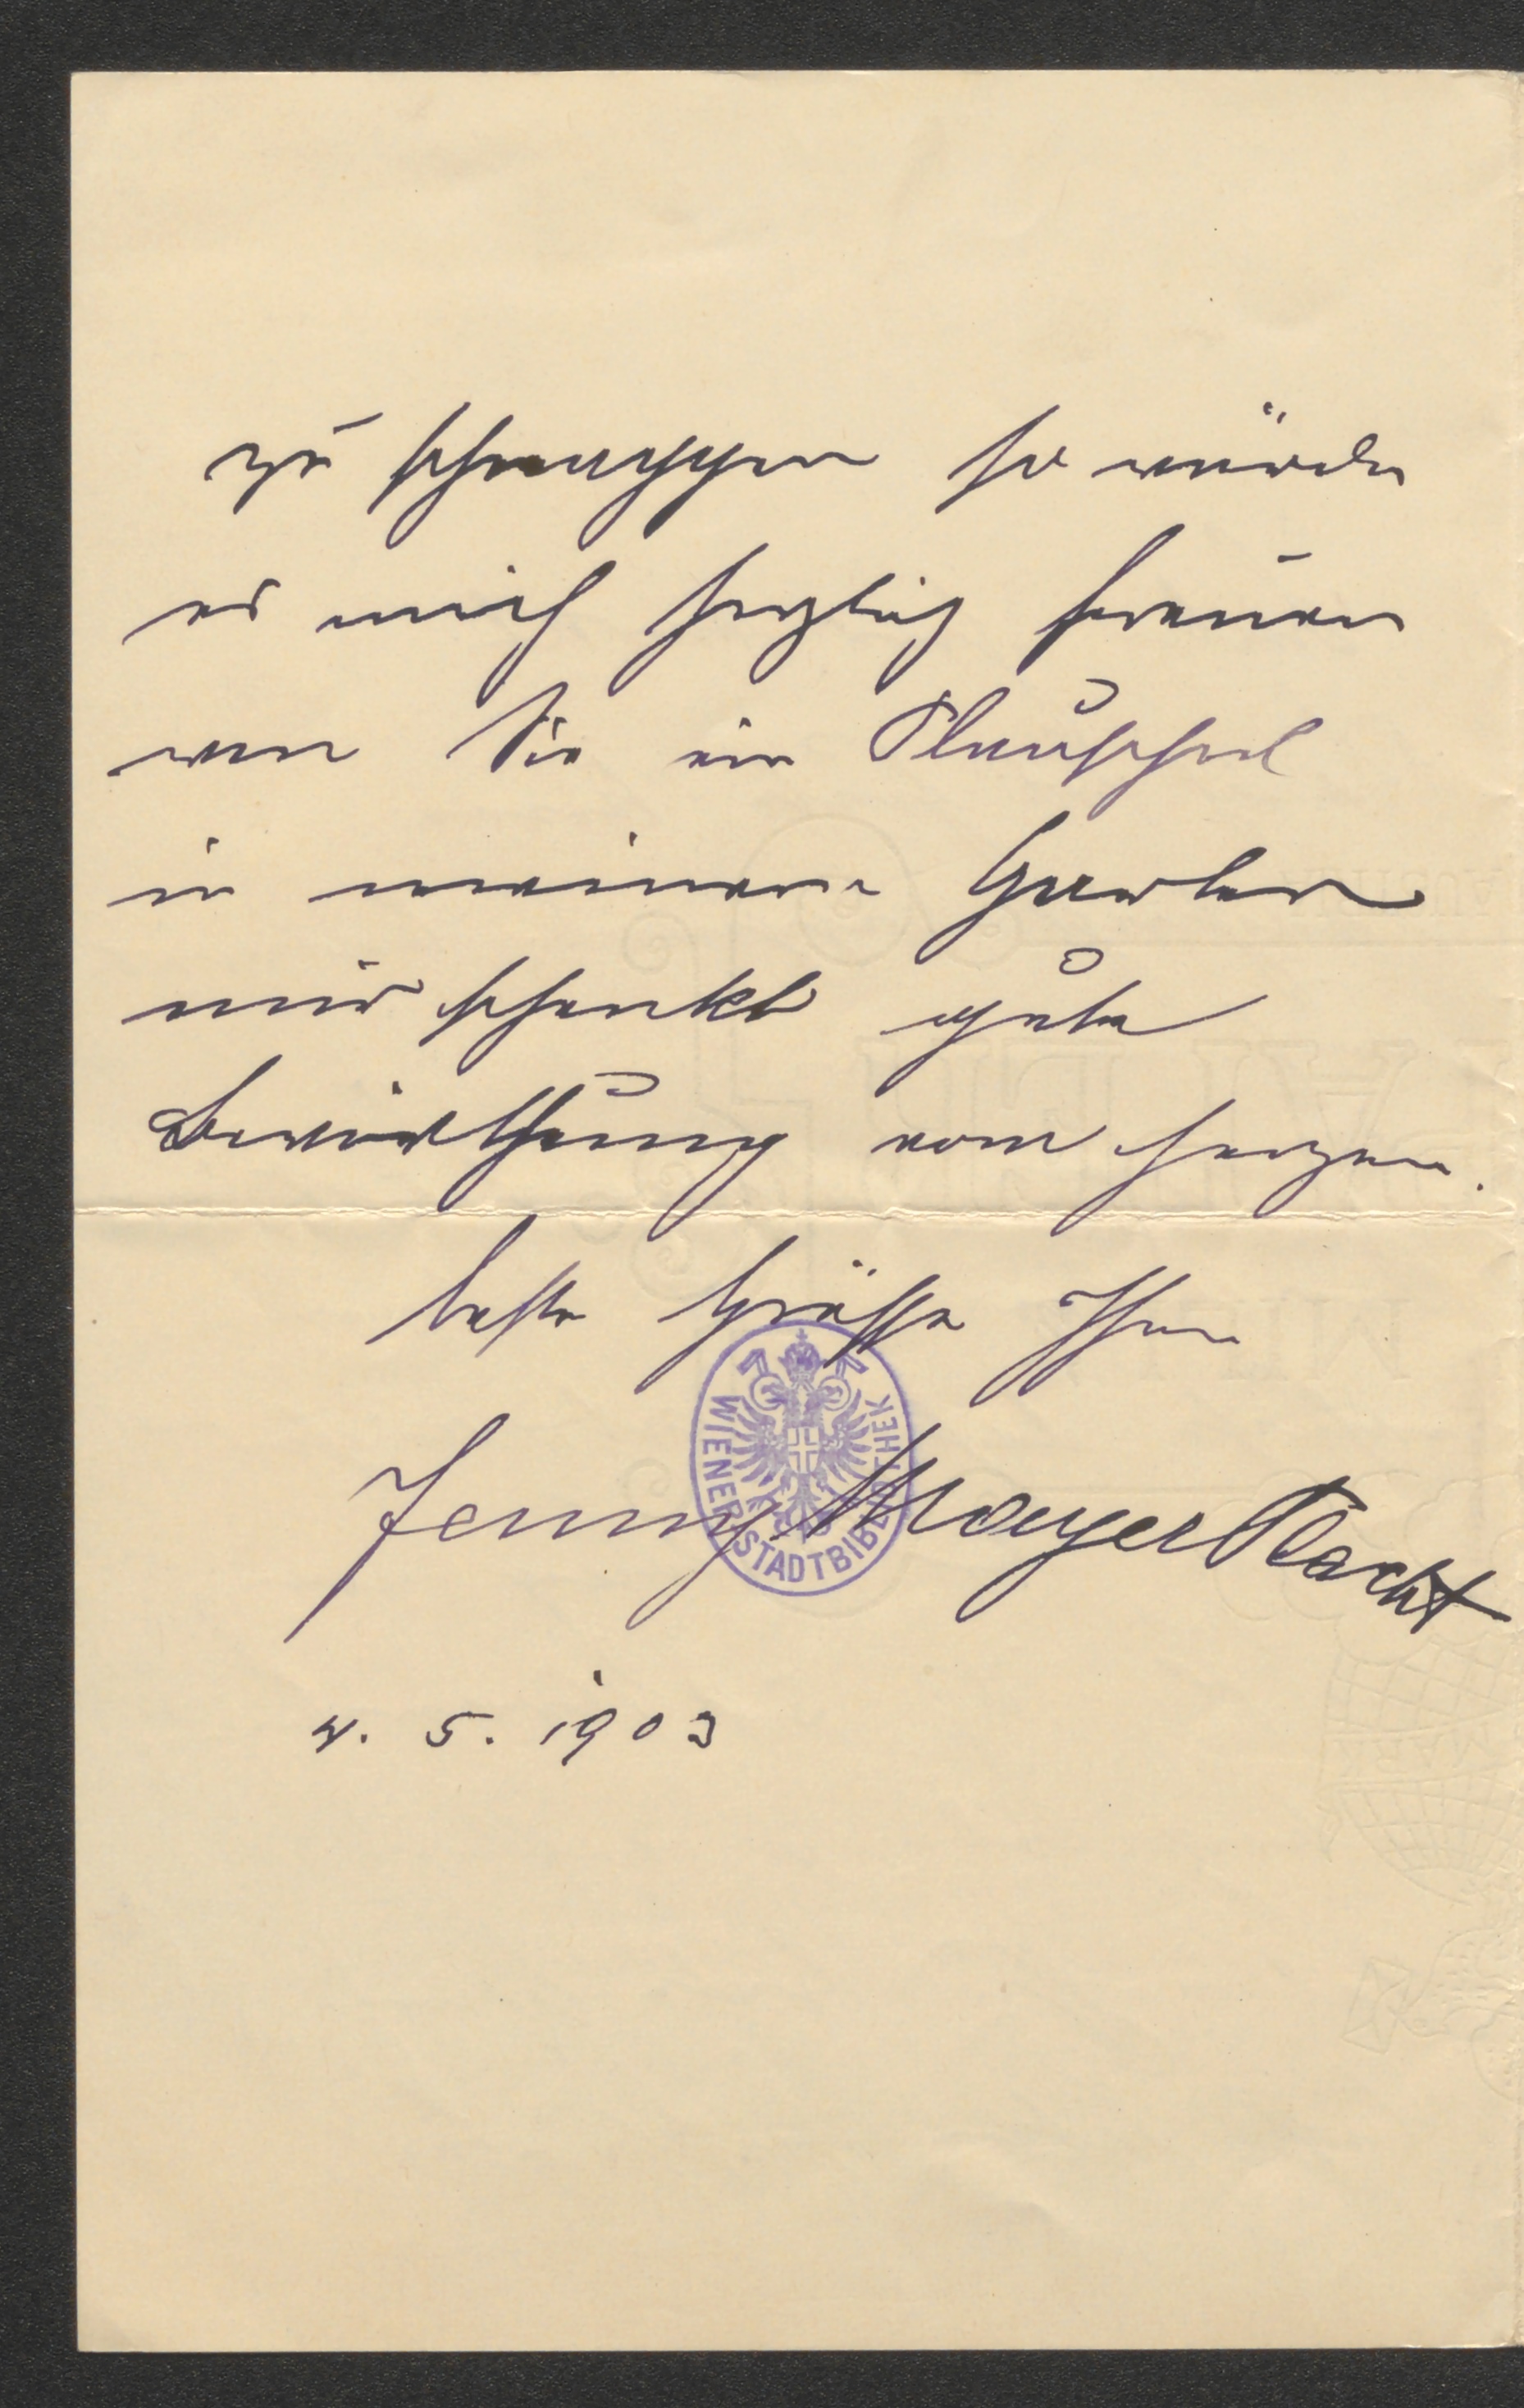 zu schnuppen so würde
es mich herzlich freuen
wen Sie ein Plauscherl
in meinem Garten
mir schenkt gute
Bewirthung vom herzen.
beste Grüsse Ihre
Jenny Mayer Placht
4. 5. 1903
WIENER STADTBIBLIOTHEK